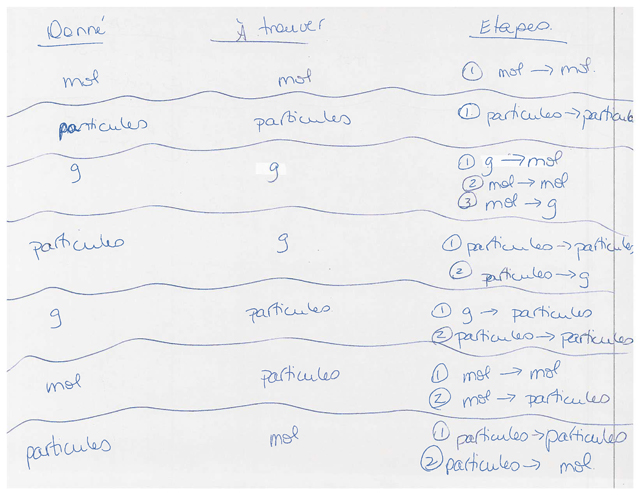 Donné À trouver Etapes
mol mol ① mol → mol.
particules particules ① particules → particule
g g ① g → mol
② mol → mol
③ mol → g
particules g ① particules → particules
② particules → g
g particules ① g → particules
② particules → particules
mol particules ① mol → mol
② mol → particules
particules mol ① particules → particules
② particules → mol.